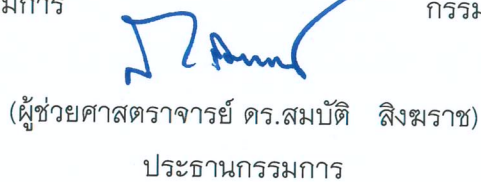 มการ กรรม
(ผู้ช่วยศาสตราจารย์ ดร.สมบัติ สิงฆราช)
ประธานกรรมการ